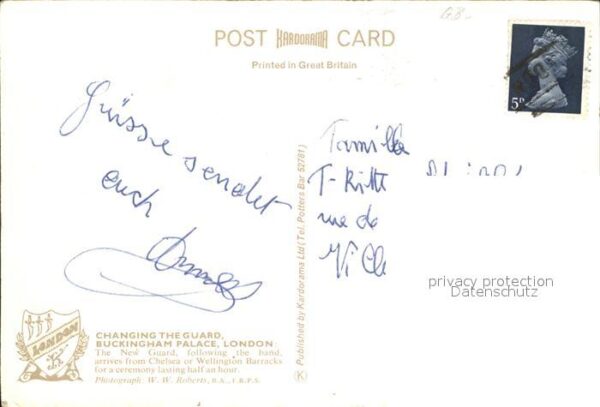 POST KARDORAMA CARD
Printed in Great Britain
5D
Grüsse sendet
euch
Familie
rue de
Published by Kardorama Ltd (Tel. Potters Bar 52781)
privacy protection
Datenschutz
LONDON
CHANGING THE GUARD,
BUCKINGHAM PALACE, LONDON
The New Guard, following the band,
arrives from Chelsea or Wellington Barracks
for a ceremony lasting half an hour.
Photograph: W. W. Roberts,
K